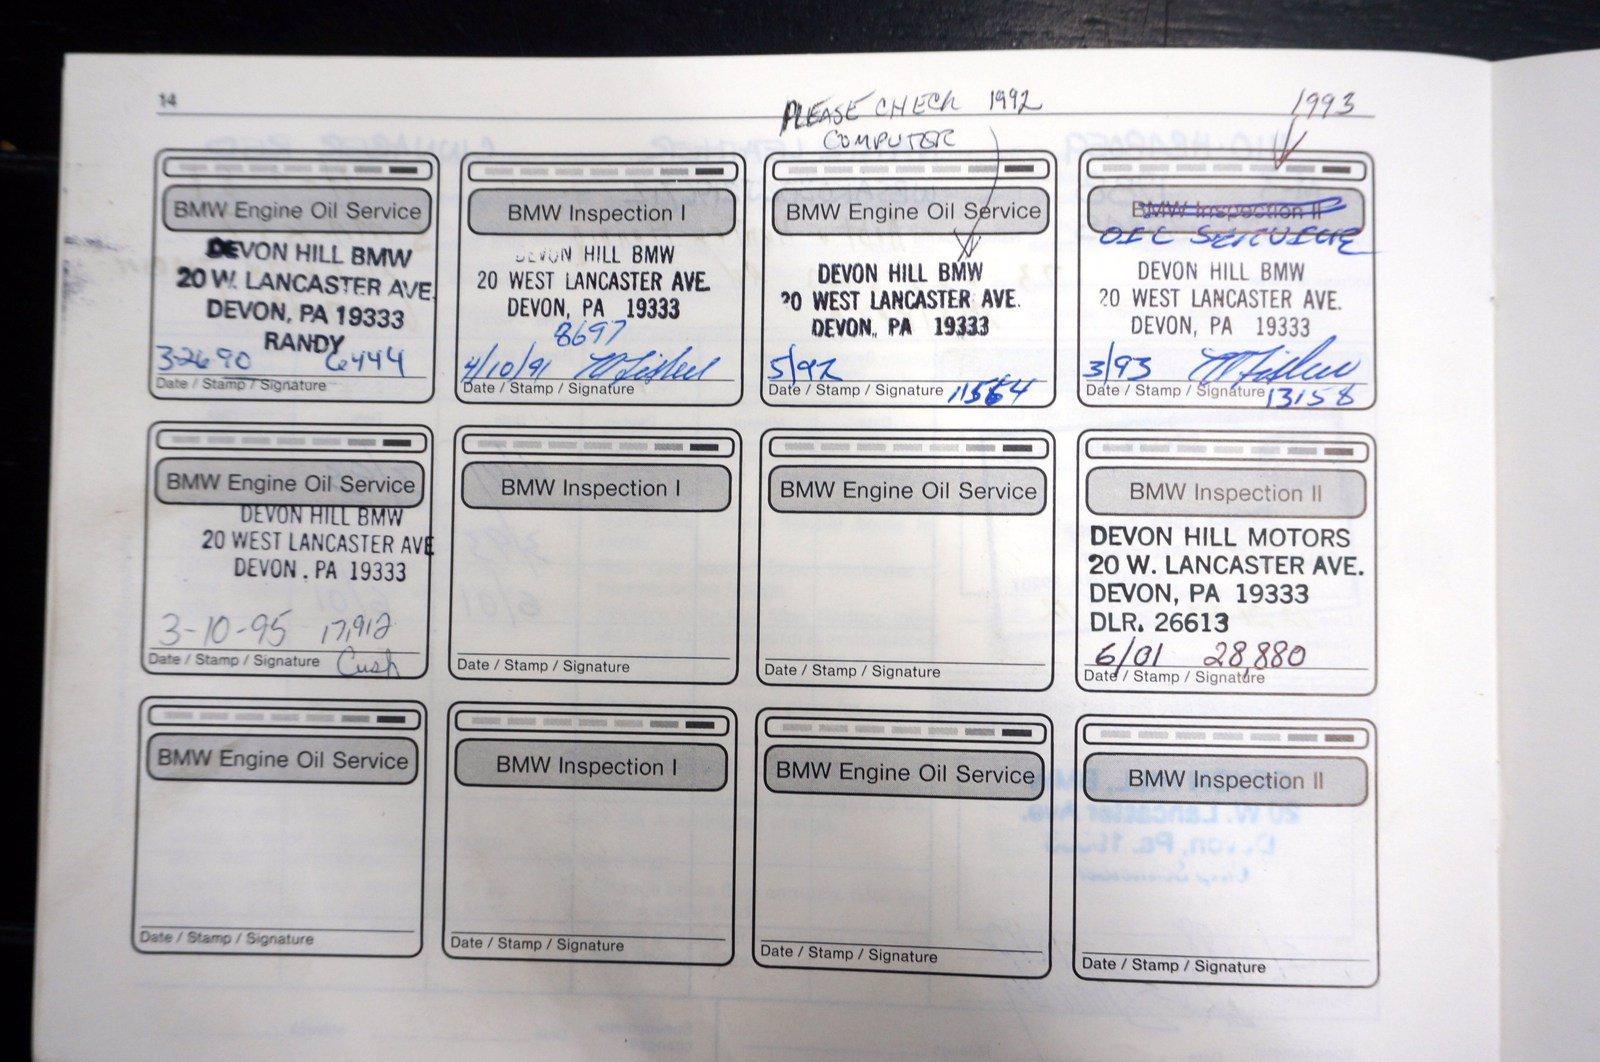 14
PLEASE CHECK 1992
COMPUTER
1993
BMW Engine Oil Service
DEVON HILL BMW
20 W. LANCASTER AVE.
DEVON, PA 19333
RANDY
3-26-90 6444
Date / Stamp / Signature
BMW Inspection I
DEVON HILL BMW
20 WEST LANCASTER AVE.
DEVON, PA 19333
8697
4/10/91
Date / Stamp / Signature
BMW Engine Oil Service
DEVON HILL BMW
20 WEST LANCASTER AVE.
DEVON, PA 19333
5/92
Date / Stamp / Signature 11564
BMW Inspection II
OIL SERVICE
DEVON HILL BMW
20 WEST LANCASTER AVE.
DEVON, PA 19333
3/93
Date / Stamp / Signature 13158
BMW Engine Oil Service
DEVON HILL BMW
20 WEST LANCASTER AVE
DEVON, PA 19333
3-10-95 17,912
Date / Stamp / Signature Cush
BMW Inspection I
Date / Stamp / Signature
BMW Engine Oil Service
Date / Stamp / Signature
BMW Inspection II
DEVON HILL MOTORS
20 W. LANCASTER AVE.
DEVON, PA 19333
DLR. 26613
6/01 28,880
Date / Stamp / Signature
BMW Engine Oil Service
Date / Stamp / Signature
BMW Inspection I
Date / Stamp / Signature
BMW Engine Oil Service
Date / Stamp / Signature
BMW Inspection II
Date / Stamp / Signature